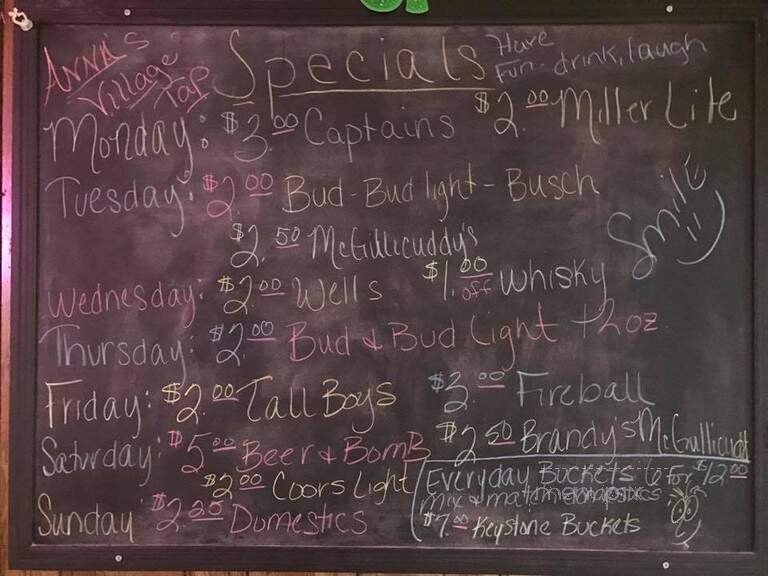 ANNA'S Village Tap
Specials
Have Fun. drink, laugh
Monday: $3.00 Captains $2.00 Miller Lite
Tuesday: $2.00 Bud-Bud light-Busch
$2.50 McGillicuddy's
Smile
Wednesday: $2.00 Wells $1.00 off Whisky
Thursday: $2.00 Bud & Bud Light 12oz
Friday: $2.00 Tall Boys $2.00 Fireball
Saturday: $5.00 Beer & Bomb $2.50 Brandy's McGullicudt
$2.00 Coors Light
Sunday $2.00 Domestics
Everyday Buckets 6 for $12.00
Mix & match
$7.00 Keystone Buckets